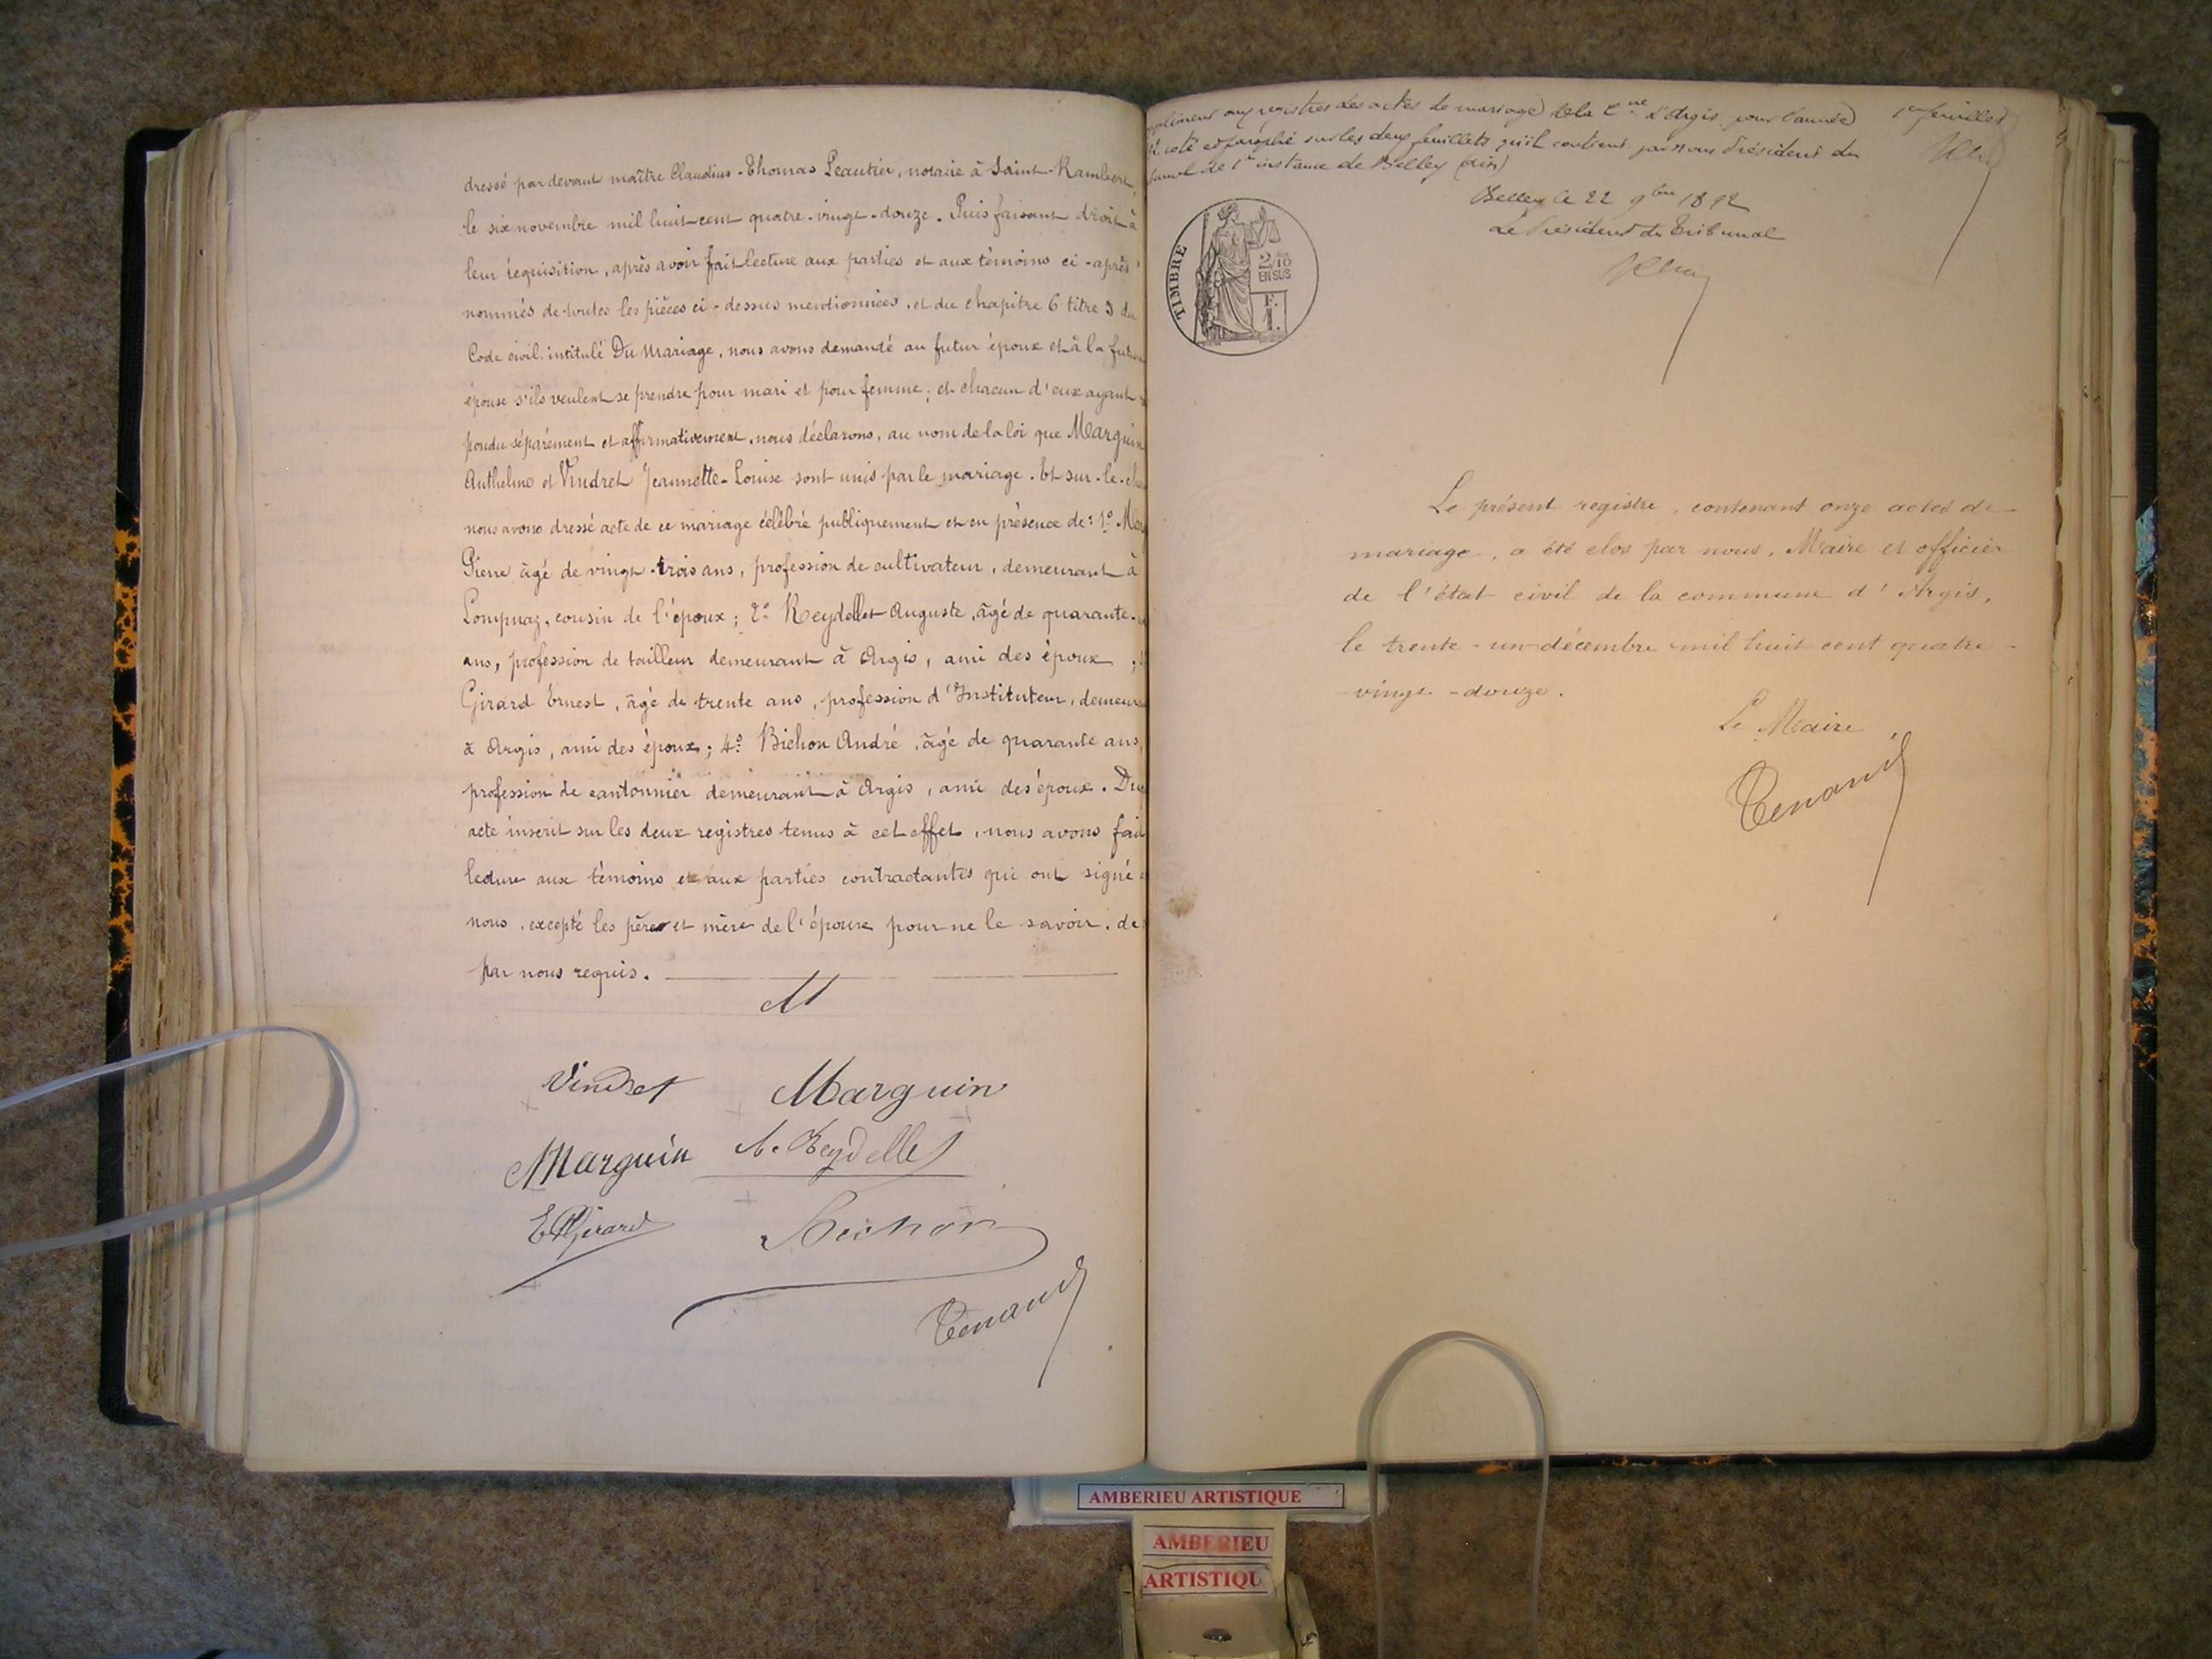 dressé par devant maître Claudius-Thomas Leautier, notaire à Saint-Rambert,
le six novembre mil huit cent quatre-vingt-douze. Puis faisant droit à
leur requisition, après avoir fait lecture aux parties et aux témoins ci-après
nommés de toutes les pièces ci-dessus mentionnées, et du chapitre 6 titre 5 du
Code civil, intitulé Du Mariage, nous avons demandé au futur époux et à la future
épouse s'ils veulent se prendre pour mari et pour femme; et chacun d'eux ayant
pondu séparément et affirmativement, nous déclarons, au nom de la loi que Marguin
Anthelme et Vindret Jeannette-Louise sont unis par le mariage. Et sur-le-
nous avons dressé acte de ce mariage célébré publiquement et en présence de: 1º
Pierre âgé de vingt-trois ans, profession de cultivateur, demeurant à
Lompnaz, cousin de l'époux; 2º Reydellet Auguste, âgé de quarante-
ans, profession de tailleur demeurant à Argis, ami des époux,
Girard Ernest, âgé de trente ans, profession d'Instituteur, demeur
à Argis, ami des époux; 4º Bichon André, âgé de quarante ans,
profession de cantonnier demeurant à Argis, ami des époux. Du
acte inscrit sur les deux registres tenus à cet effet, nous avons fait
lecture aux témoins et aux parties contractantes qui ont signé
nous, excepté les père et mère de l'épouse pour ne le savoir, de
par nous requis.
M
Vindret Marguin
Marguin A. Reydellet
E Girard Bichon
Tenand
aux registres des actes de mariage de la Cne d'Argis pour l'année 1er feuillet
coté et paraphé sur les deux feuillets qu'il contient par nous Président du
de 1re instance de Belley (Ain)
Belley le 22 9bre 1892
Le Président du Tribunal
TIMBRE
2/10
EN SUS
F.
1.
Le présent registre, contenant onze actes de
mariage, a été clos par nous, Maire et officier
de l'état civil de la commune d'Argis,
le trente-un décembre mil huit cent quatre-
-vingt-douze.
Le Maire
Tenand
AMBERIEU ARTISTIQUE
AMBERIEU
ARTISTIQU